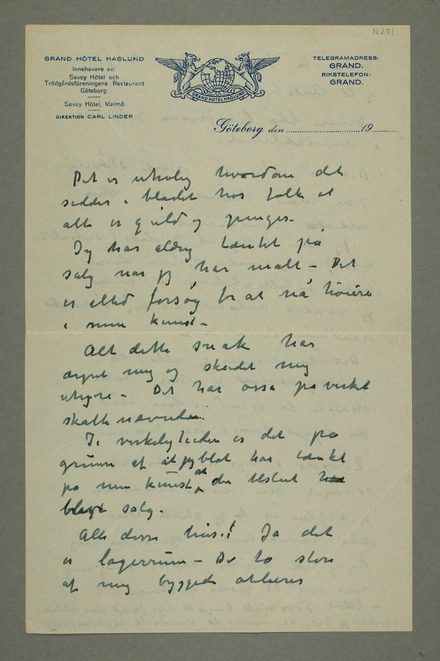 N291
GRAND HÔTEL HAGLUND
Innehavare av
Savoy Hôtel och
Trädgårdsföreningens Restaurant
Göteborg
Savoy Hôtel, Malmö
DIREKTION CARL LINDER
GRAND HÔTEL HAGLUND
TELEGRAMADRESS:
GRAND.
RIKSTELEFON:
GRAND.
Göteborg den 19
Det er utrolig hvordan det
sidder i blodet hos folk at
alt er guld og penger –
Jeg har aldrig tænkt på
salg når jeg har malt – Det
er altid forsøg for at nå høiere
i min kunst –
Alt dette snak har
ærgret mig og skadet mig
uhyre – Det har også påvirket
skattenævnden.
I virkeligheden er det på
grund af at jeg blot har tænkt
på min kunst at der tilslut
blev salg.
Alle disse huse! Ja det
er lagerrum – De to store
af mig byggede atelierer